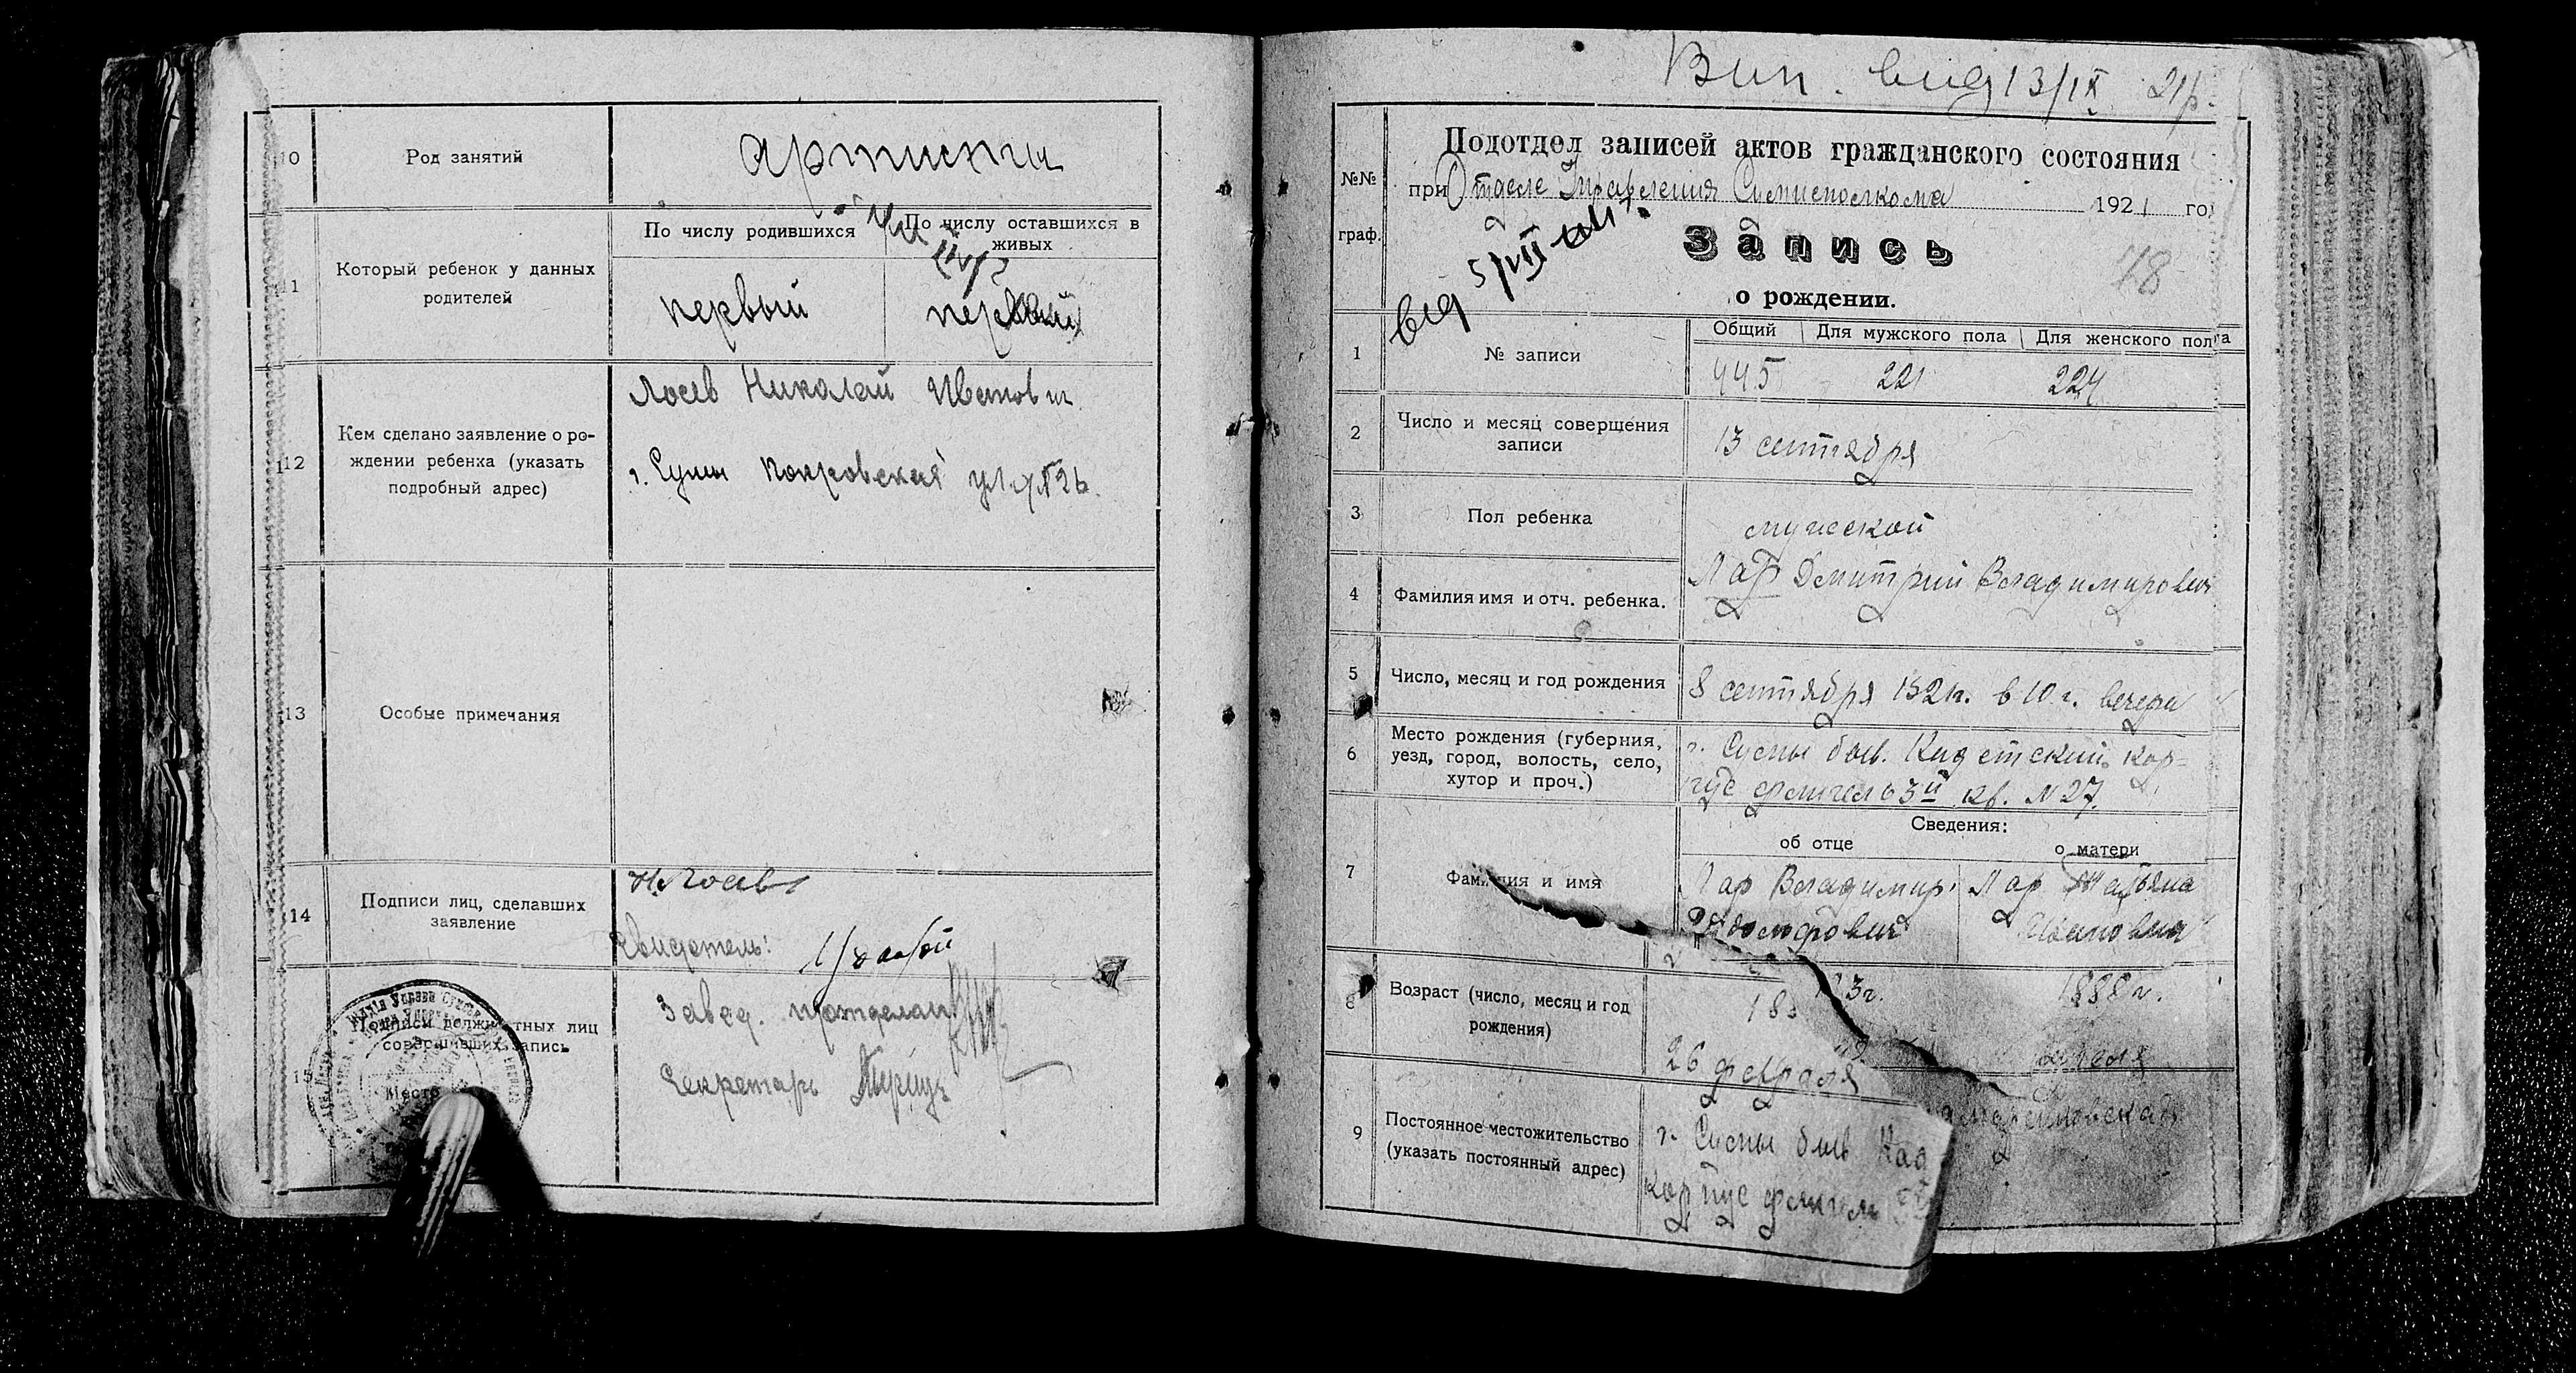 10
Род занятий
артисты
11
Который ребенок у данных
родителей
По числу родившихся
По числу оставшихся в
живых
первый
первый
12
Кем сделано заявление о ро-
ждении ребенка (указать
подробный адрес)
Лосев Николай Иванович
г. Сумы Покровская ул. № 26.
13
Особые примечания
14
Подписи лиц, сделавших
заявление
Н. Лосев
Свидетель:
15
Подписи должностных лиц
совершивших запись
Место
Завед. подотделом
Секретарь
Вип. вид 13/IX 21р.
№№
граф.
Подотдел записей актов гражданского состояния
при Отделе Управления Сумисполкома 1921 го
вид 5/VII
Запись
о рождении.
78
1
№ записи
Общий
Для мужского пола
Для женского пола
445
221
224
2
Число и месяц совершения
записи
13 сентября
3
Пол ребенка
мужской
4
Фамилия имя и отч. ребенка.
Лар Дмитрий Владимирович
5
Число, месяц и год рождения
8 сентября 1921г. в 10 ч. вечера
6
Место рождения (губерния,
уезд, город, волость, село,
хутор и проч.)
г. Сумы бывш. Кадетский кор-
пус флигель 3й кв. № 27.
Сведения:
об отце
о матери
7
Фамилия и имя
Лар Владимир
Рудольфович
Лар Татьяна
Ивановна
8
Возраст (число, месяц и год
рождения)
3г.
26 февраля
1888 г.
9
Постоянное местожительство
(указать постоянный адрес)
г. Сумы бывш Кад
корпус флигель